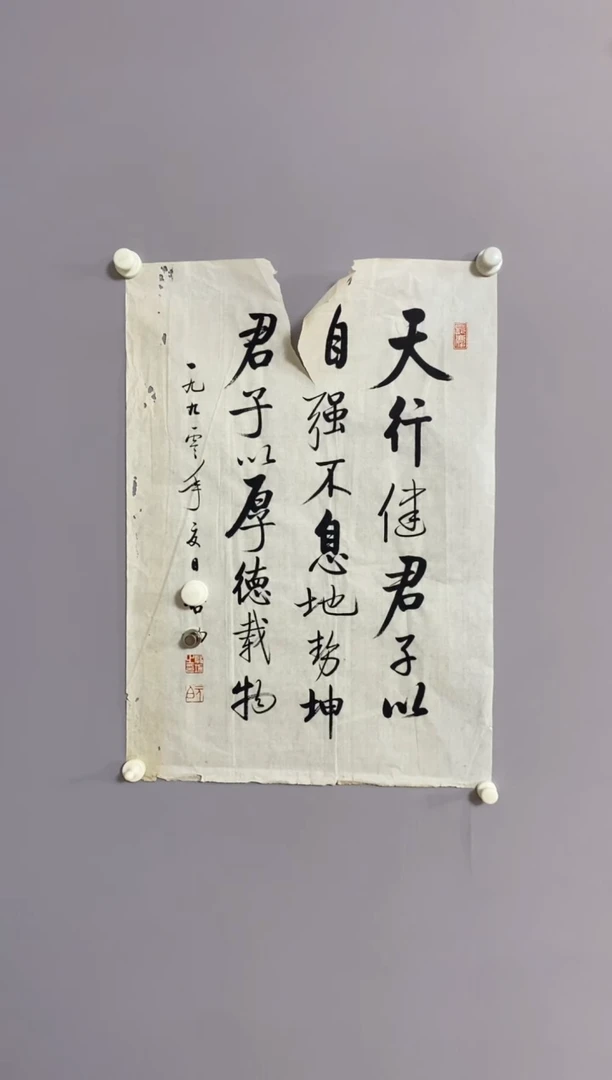 天行健君子以
自强不息地势坤
君子以厚德载物
一九九零年夏日